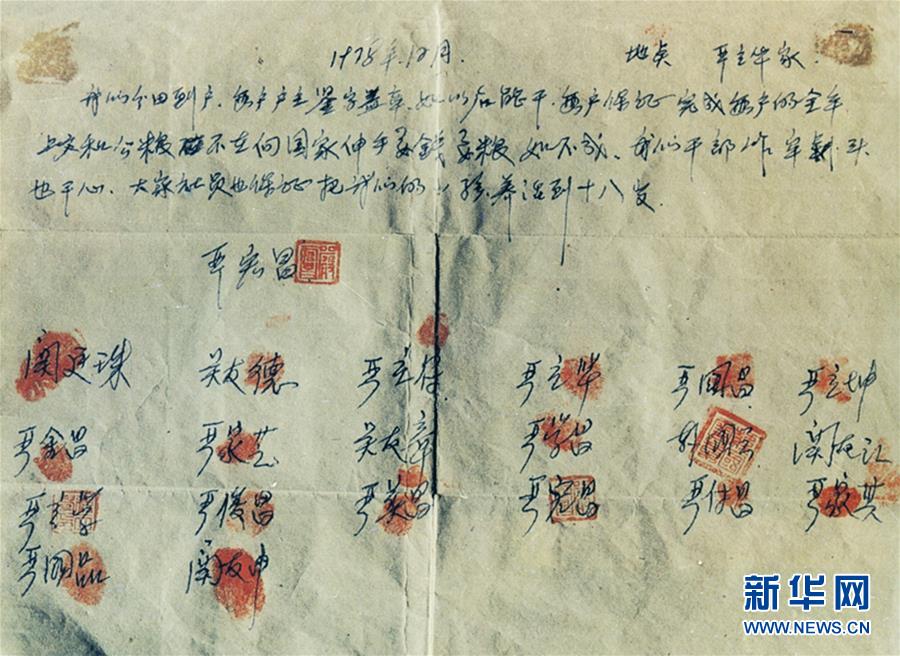 1978年12月. 地点 严立华家.
我们分田到户,每户户主鉴字盖章,如以后能干,每户保证完成每户的全年
上交和公粮 不在向国家伸手要钱要粮 如不成,我们干部作牢刹头
也干心,大家社员也保证把我们的小孩养活到十八岁.
严宏昌
関廷珠 关友德 严立符 严立华 严国昌 严立坤
严金昌 严家芝 关友章 严学昌 韩国云 関友江
严立学 严俊昌 严美昌 严宏昌 严付昌 严家其
严国品 関友申
新华网
WWW.NEWS.CN